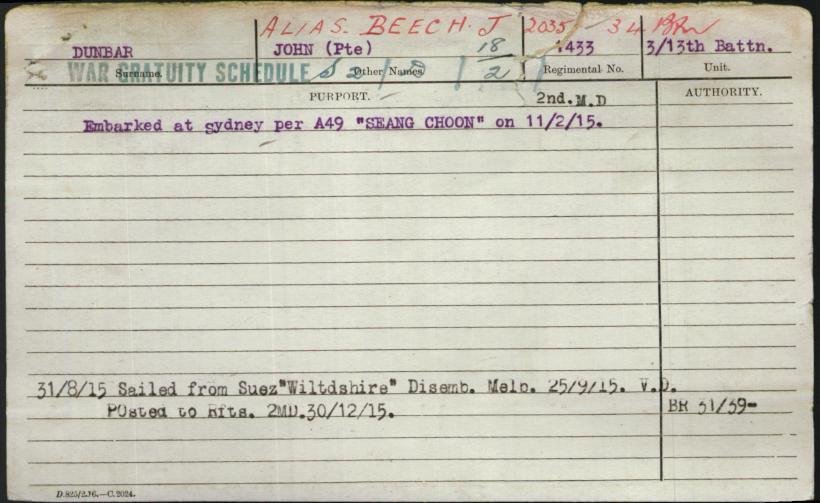 ALIAS. BEECH. J 2035 34 Bn
DUNBAR JOHN (Pte) 18/2 1433 3/13th Battn.
WAR GRATUITY SCHEDULE
Surname. Other Names Regimental No. Unit.
PURPORT. 2nd.M.D AUTHORITY.
Embarked at sydney per A49 "SEANG CHOON" on 11/2/15.
31/8/15 Sailed from Suez"Wiltdshire" Disemb. Melb. 25/9/15. V.D.
POsted to Rfts. 2MD.30/12/15. BR 31/39-
D.825/2.16.—C.2024.